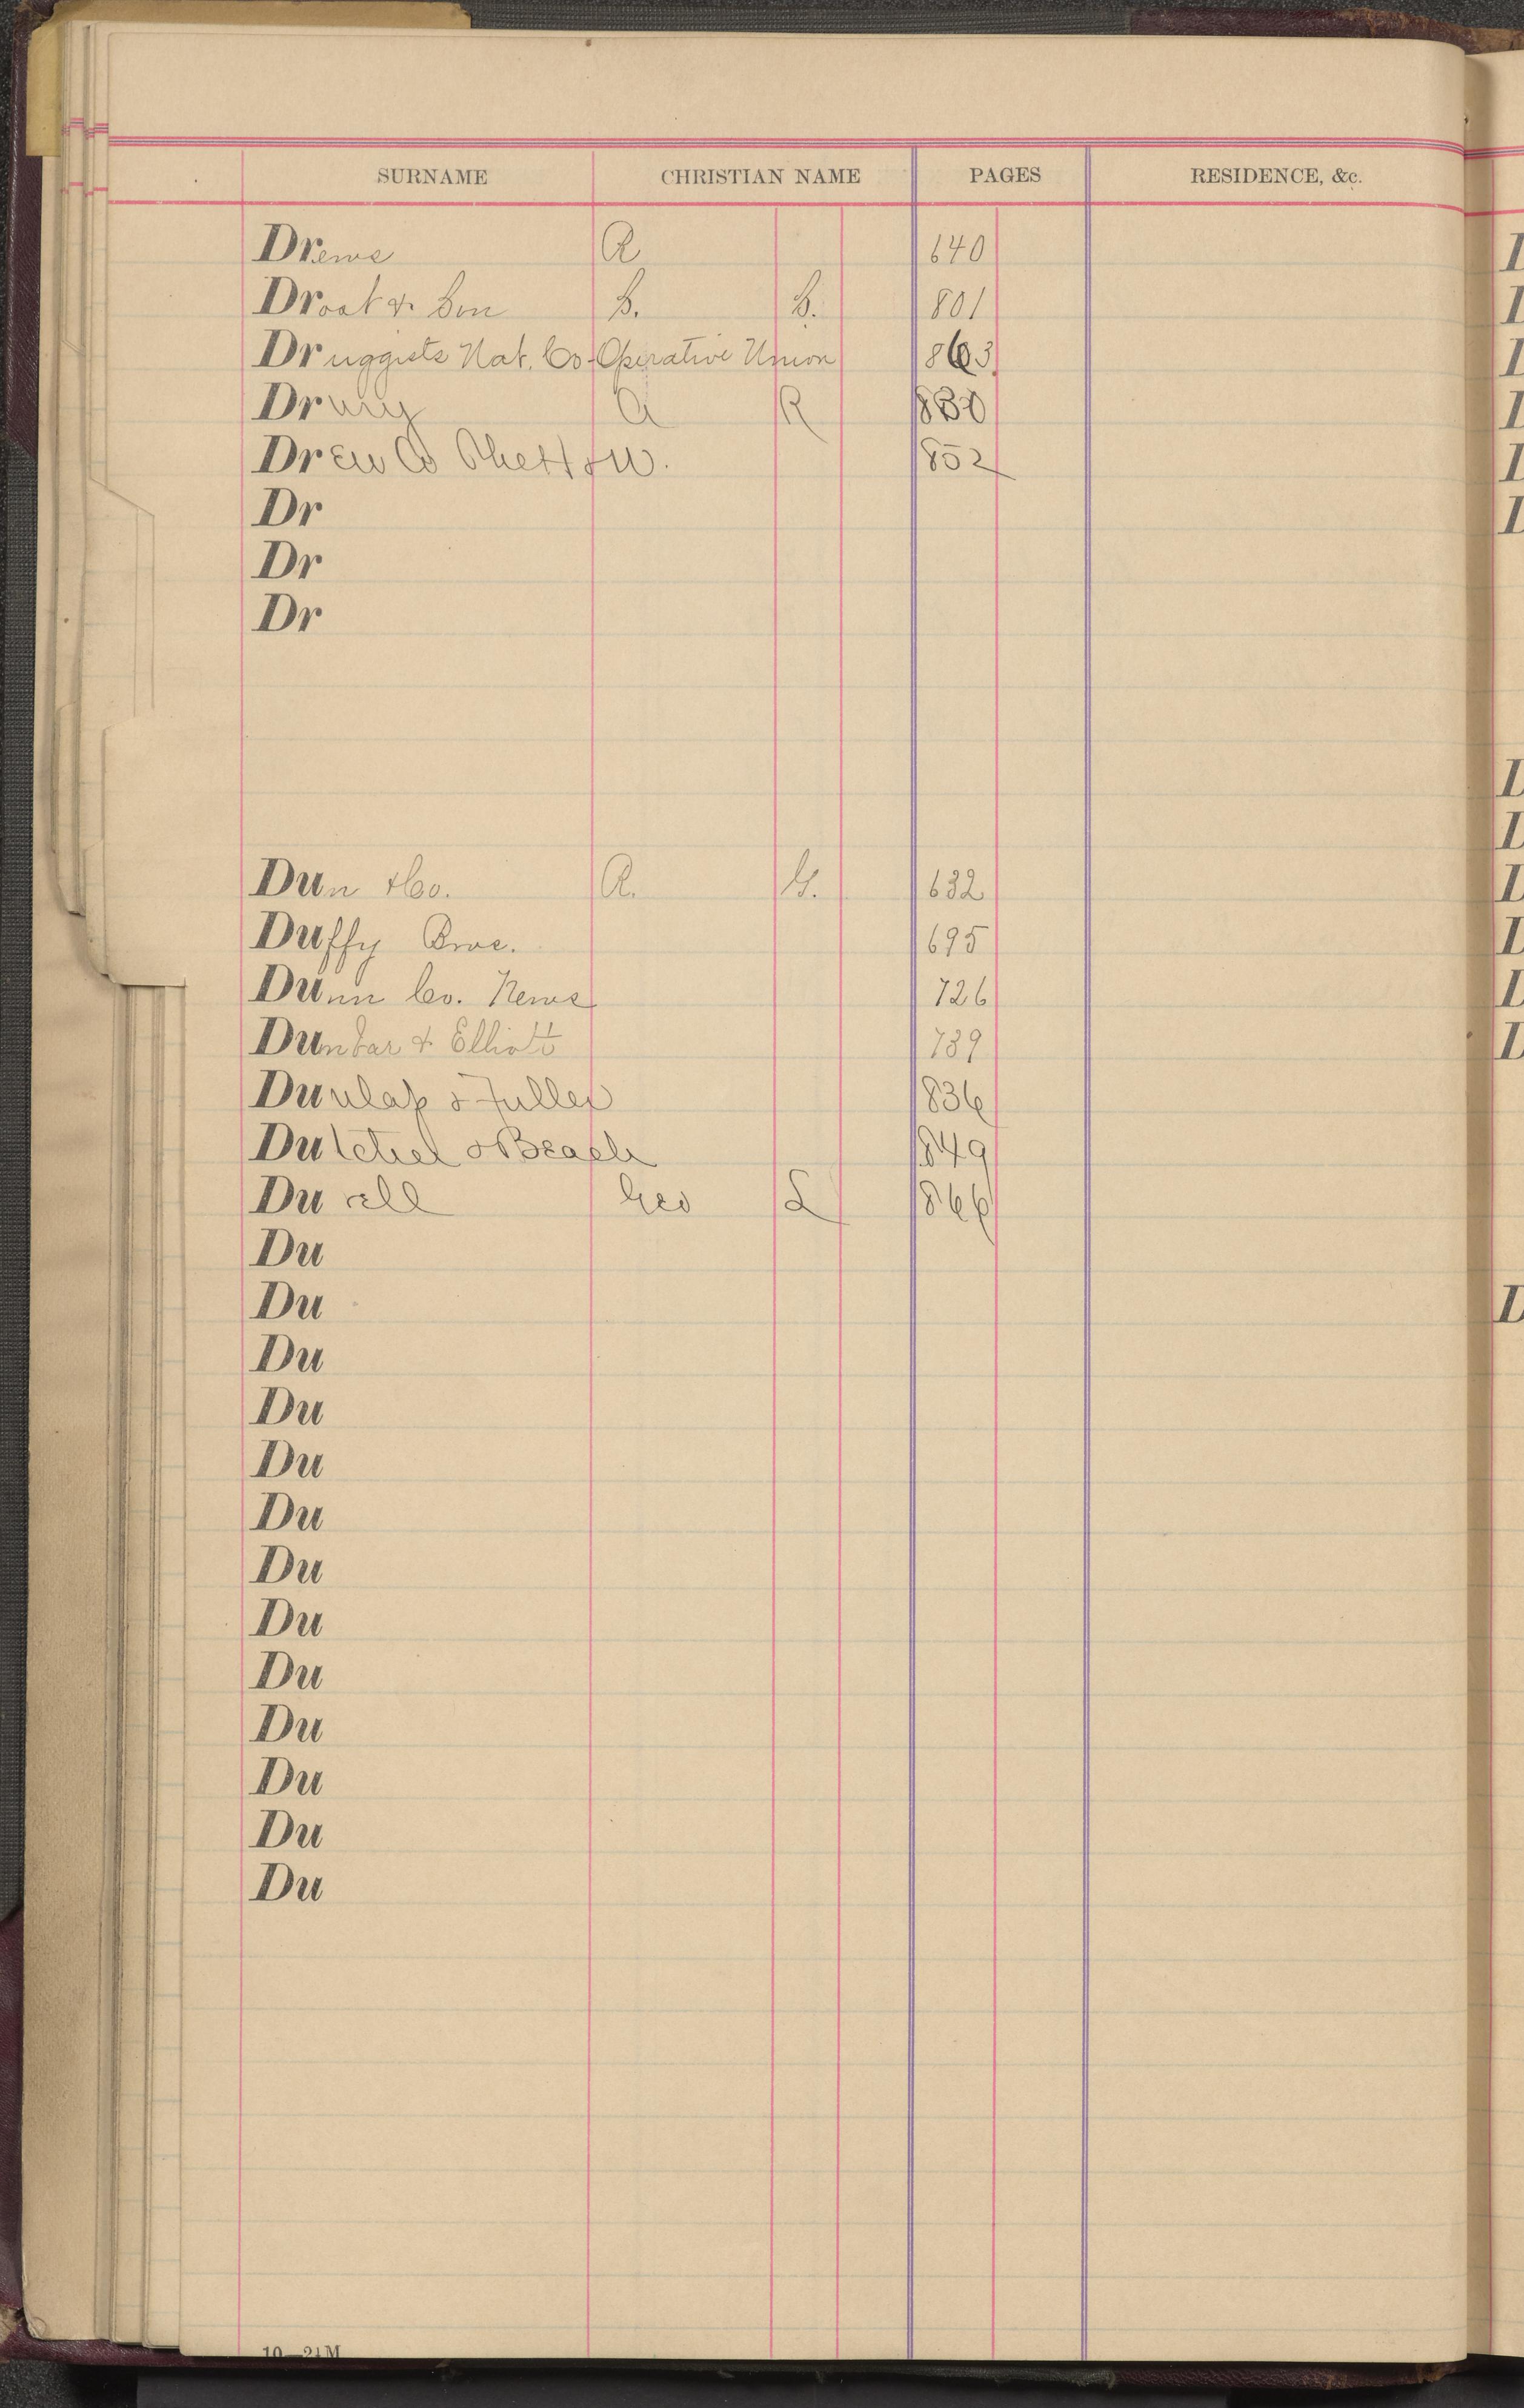 SURNAME CHRISTIAN NAME PAGES RESIDENCE, &c.
Drews R 640
Drost & Son S. S. 801
Druggists Nat. Co-Operative Union 863
Drury A R 830
Drew Co 852
Dr
Dr
Dr
Dun & Co. R. G. 632
Duffy Bros. 695
Dunn Co. News 726
Dunbar & Elliott 739
Dunlap & Fuller 836
Dutcher & Beach 849
Du ell Geo L 866
Du
Du
Du
Du
Du
Du
Du
Du
Du
Du
Du
Du
Du
10—24M